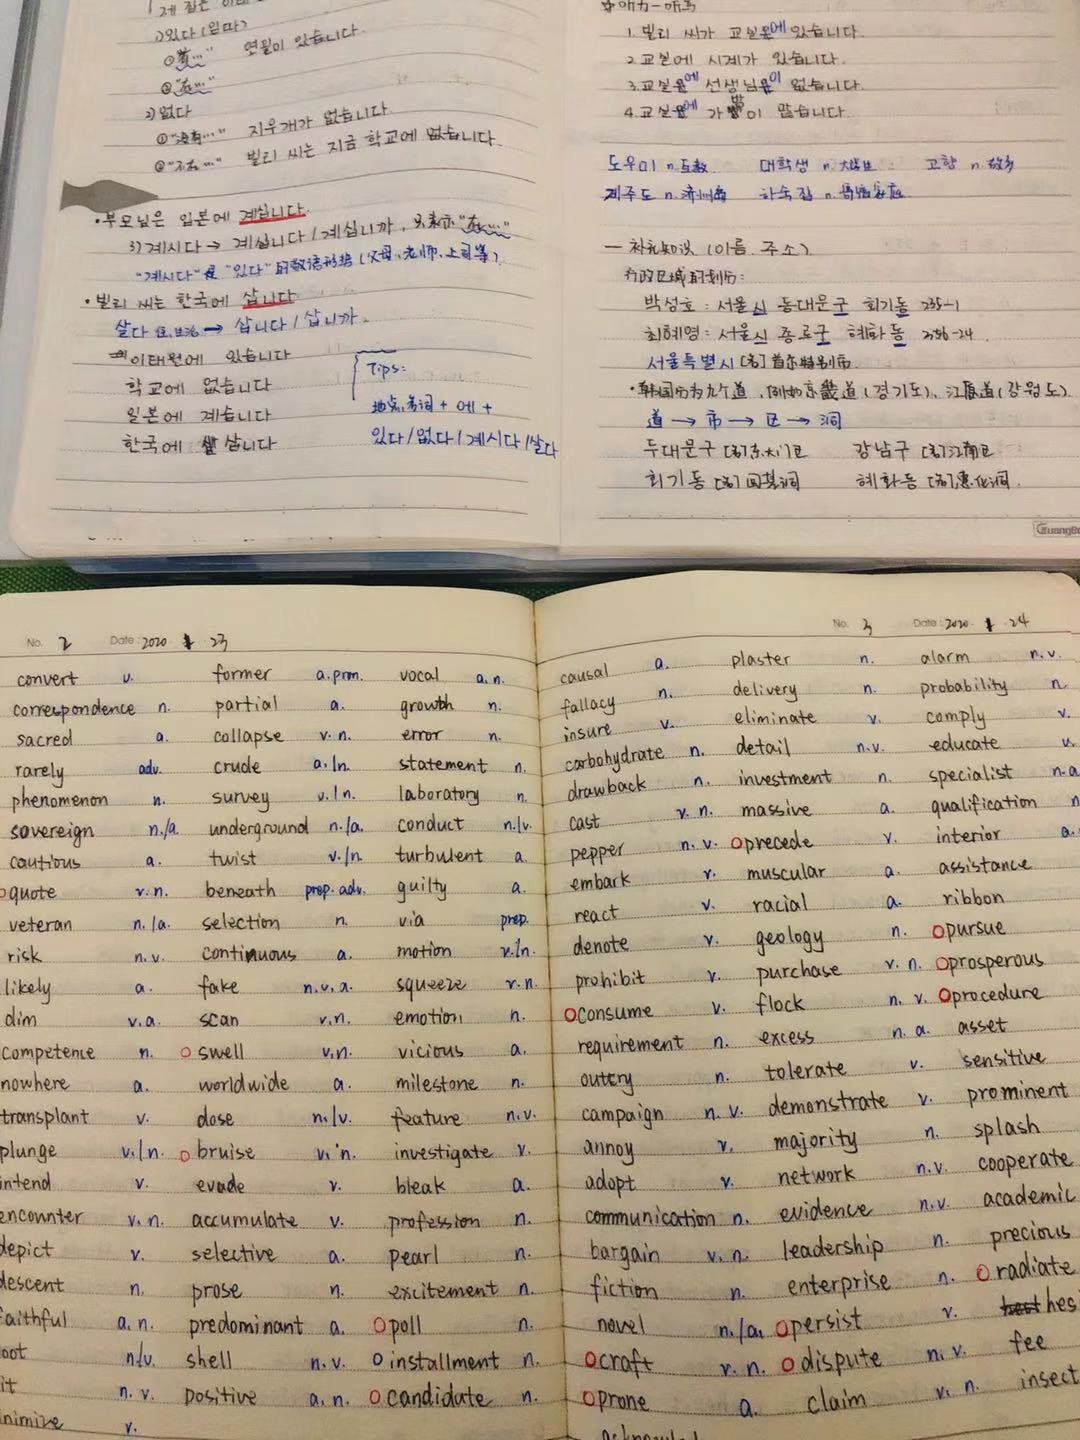 1)있다 (있따)
①"有…" 연필이 있습니다.
②"在…"
2)없다
①"没有…" 지우개가 없습니다.
②"不在…" 빌리 씨는 지금 학교에 없습니다.
·부모님은 일본에 계십니다.
3)계시다→ 계십니다/계십니까, 只表示"在…"
"계시다"是"있다"的敬语形态(父母、老师、上司等).
·빌리 씨는 한국에 삽니다
살다 住,生活 → 삽니다/삽니까.
이태원에 있습니다
학교에 없습니다
일본에 계습니다
한국에 삽니다
Tips:
地点名词 + 에 +
있다/없다/계시다/살다
听力-听写
1. 빌리 씨가 교실에 있습니다.
2. 교실에 시계가 있습니다.
3. 교실에 선생님이 없습니다.
4. 교실에 가방이 많습니다.
도우미 n. 대학생 n. 大学生 고향 n. 故乡
제주도 n. 济州岛 하숙집 n. 寄宿家庭
一 补充知识 (이름, 주소)
行政区域的划分:
박성호: 서울시 동대문구 회기동 235-1
최혜영: 서울시 종로구 혜화동 2386-24
서울특별시 [名] 首尔特别市
·韩国分为九个道, 例如京畿道(경기도), 江原道(강원도)
道 → 市 → 区 → 洞
두대문구 [名]东大门区 강남구 [名]江南区
회기동 [名]回基洞 혜화동 [名]惠化洞.
GuangBo
No. 2 Date: 2020 1 23
convert v. former a.pron. vocal a.n.
correspondence n. partial a. growth n.
sacred a. collapse v.n. error n.
rarely adv. crude a./n. statement n.
phenomenon n. survey v./n. laboratory n.
sovereign n./a. underground n./a. conduct n./v.
cautious a. twist v./n. turbulent a.
quote v.n. beneath prep.adv. guilty a.
veteran n./a. selection n. via prep.
risk n.v. continuous a. motion v./n.
likely a. fake n.v.a. squeeze v.n.
dim v.a. scan v.n. emotion n.
competence n. swell v.n. vicious a.
nowhere a. worldwide a. milestone n.
transplant v. dose n./v. feature n.v.
plunge v./n. bruise v.n. investigate v.
intend v. evade v. bleak a.
encounter v.n. accumulate v. profession n.
depict v. selective a. pearl n.
descent n. prose n. excitement n.
faithful a.n. predominant a. poll n.
oot n./v. shell n.v. installment n.
it n.v. positive a.n. candidate n.
inimize v.
No. 3 Date: 2020 1 24
causal a. plaster n. alarm n.v.
fallacy n. delivery n. probability n.
insure v. eliminate v. comply v.
carbohydrate n. detail n.v. educate v.
drawback n. investment n. specialist n.a
cast v.n. massive a. qualification n
pepper n.v. precede v. interior a.
embark v. muscular a. assistance
react v. racial a. ribbon
denote v. geology n. pursue
prohibit v. purchase v.n. prosperous
consume v. flock n.v. procedure
requirement n. excess n.a. asset
outcry n. tolerate v. sensitive
campaign n.v. demonstrate v. prominent
annoy v. majority n. splash
adopt v. network n.v. cooperate
communication n. evidence n.v. academic
bargain v.n. leadership n. precious
fiction n. enterprise n. radiate
novel n./a. persist v. hes
craft v.n. dispute n.v. fee
prone a. claim v.n. insect